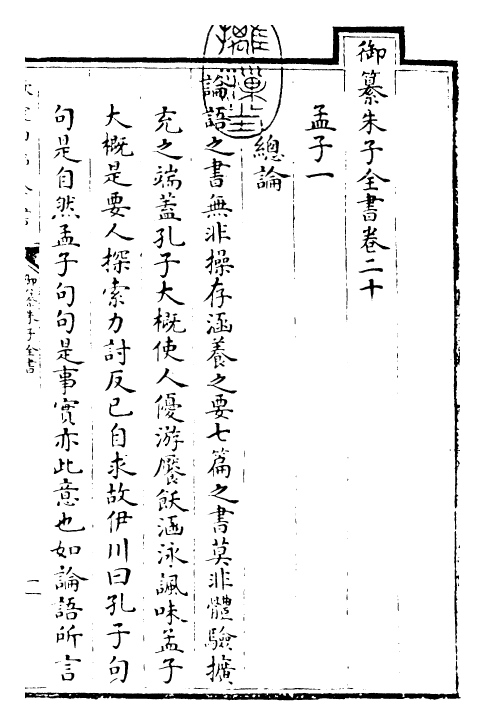 御纂朱子全書卷二十
孟子一
總論
論語之書無非操存涵養之要七篇之書莫非體驗擴
充之端蓋孔子大概使人優游饜飫涵泳諷味孟子
大概是要人探索力討反已自求故伊川曰孔子句
句是自然孟子句句是事實亦此意也如論語所言
御纂朱子全書